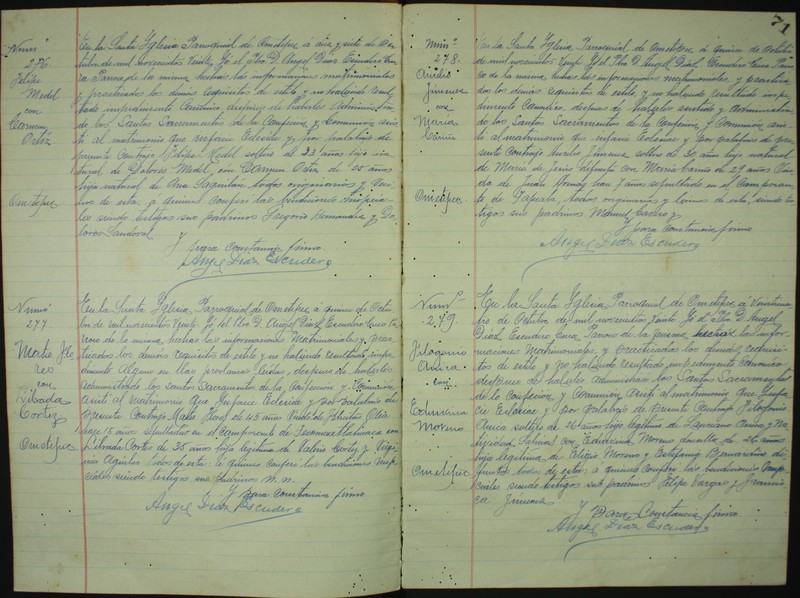 Numº
276
Felipe
Medel
con
Carmen
Ortiz
Ometepec
En la Santa Iglesia Parroquial de Ometepec á diez y siete de Oc-
tubre de mil novecientos veinte, Yo el Pbro D. Angel Díaz Escudero Cu-
ra Parroco de la misma, hechas las informaciones matrimoniales
y practicados los demás requisitos de estilo y no habiendo resul-
tado impedimento Canónico, después de haberles Administra-
do los Santos Sacramentos de la Confesión y Comunión asis-
tí al matrimonio que in facie Eclesie y por palabras de
presente Contrajo Felipe Medel soltero de 23 años hijo na-
tural de Dolores Medel, con Carmen Ortiz de años
hija natural de Ana todos originarios y veci-
nos de esta, á quienes conferí las bendiciones nupcia-
les siendo testigos sus padrinos Gregorio Hernandez y Do-
lores Sandoval
Y para constancia firmo
Angel Díaz Escudero
Numº
277
con
Librada
Cortez
Ometepec
En la Santa Iglesia Parroquial de Ometepec á quince de Octu-
bre de mil novecientos veinte Yo el Pbro D. Angel Díaz Escudero Cura Pa-
rroco de la misma, hechas las informaciones Matrimoniales y prac-
ticados los demás requisitos de estilo y no habiendo resultado impe-
dimento Alguno en las proclamas leidas, después de haberles
administrado los santos Sacramentos de la Confesion y Comunion
asistí al Matrimonio que In facie Eclesie y por palabras de
presente Contrajo de 45 años Viudo de
hace 15 años sepultada en el camposanto de con
Librada Cortes de 35 años hija legitima de Valerio Cortez y Virgi-
nia de esta: á quienes conferí las bendiciones nup-
ciales siendo testigos sus padrinos N. N.
Y Para Constancia firmo
Angel Díaz Escudero
71
Numº
278.
Jimenez
con
Maria
Ometepec
En la Santa Iglesia Parroquial de Ometepec á quince de Octubre
de mil novecientos veinte Yo el Pbro D. Angel Díaz Escudero Cura Párro-
co de la misma, hechas las informaciones matrimoniales, y practica-
dos los demás requisitos de estilo, y no habiendo resultado impe-
dimento Canonico, después de haberles administra-
do los Santos Sacramentos de la Confesion y Comunion asis-
tí al matrimonio que in facie Eclesie y por palabras de pre-
sente Contrajo Jimenez soltero de 30 años hijo natural
de Maria de Jesús con Maria de 29 años Viu-
da de años sepultado en el Camposan-
to de todos originarios y vecinos de esta, siendo tes-
tigos sus padrinos Manuel
Y Para constancia firmo
Angel Díaz Escudero
Numº
279.
Filogonio
con
Eduvina
Moreno
Ometepec
En la Santa Iglesia Parroquial de Ometepec á
de Octubre de mil novecientos veinte Yo el Pbro D. Angel
Díaz Escudero Cura Parroco de la misma, hechas las infor-
maciones Matrimoniales, y practicados los demás requisi-
tos de estilo, y no habiendo resultado impedimento Canonico
después de haberles administrado los Santos Sacramentos
de la Confesion, y Comunion, asistí al matrimonio que In fa-
cie Eclesie y por palabras de presente Contrajo Filogonio
soltero de 26 años hijo legitimo de y
con Moreno doncella de años
hija legitima de Felipe Moreno y Bernardino di-
funtos, todos de esta; á quienes conferí las bendiciones nup-
ciales siendo testigos sus padrinos Felipe Vargas y Francis-
ca Jimenez
Y Para Constancia firmo
Angel Díaz Escudero